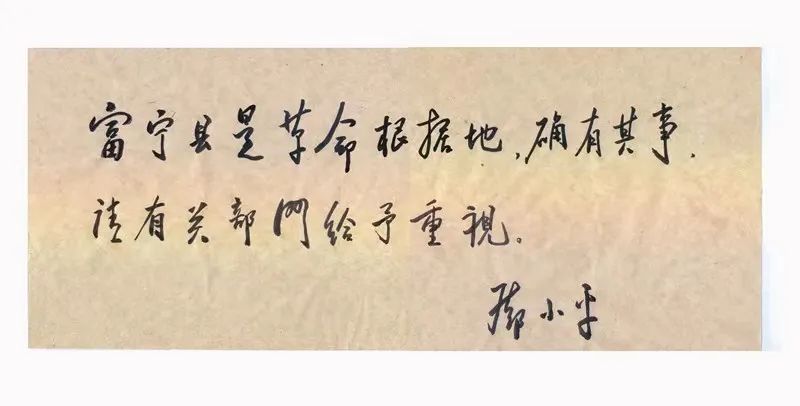 富宁县是革命根据地，确有其事．
请有关部門给予重視。
邓小平